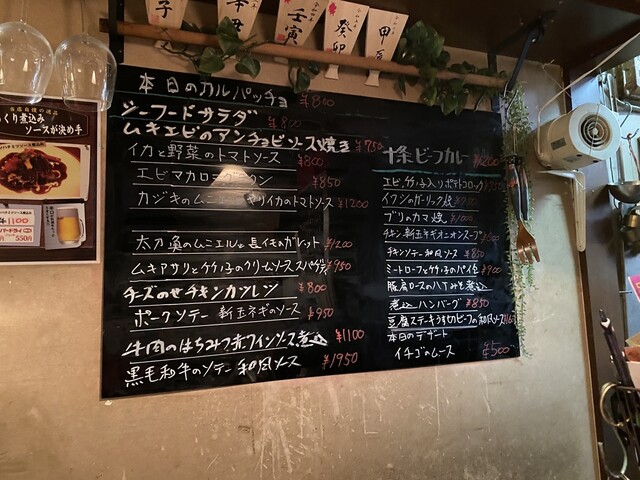 子
辛丑
壬寅
癸卯
甲辰
本日のカルパッチョ ¥800
シーフードサラダ ¥800
ムキエビのアンチョビソース焼き ¥750
イカと野菜のトマトソース ¥800
エビマカロニグラタン ¥850
カジキのムニエル ヤリイカのトマトソース ¥1200
太刀魚のムニエルと長イモのガレット ¥1200
ムキアサリとタケノ子のクリームソーススパゲティ ¥950
チーズのせチキンカツレツ ¥800
ポークソテー 新玉ネギのソース ¥950
牛肉のはちみつ赤ワインソース煮込 ¥1100
黒毛和牛のソテー 和風ソース ¥1950
十条ビーフカレー ¥1200
エビ、タケノ子入りポテトコロッケ
イワシのガーリック焼
ブリのカマ焼 ¥1000
チキン新玉ネギオニオンスープ
チキンソテー和風ソース ¥850
ミートローフとタケノ子のパイ包 ¥900
豚肩ロースのハヤシ煮込
煮込ハンバーグ ¥850
豆腐ステーキうす切りビーフの和風ソース
本日のデザート
イチゴのムース ¥500
当店自慢の逸品
っくり煮込み
ソースが決め手
1100
550円